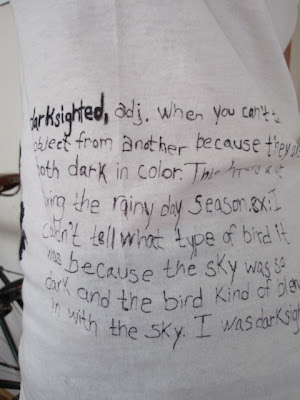 darksighted, adj. When you can't
object from another because they
both dark in color. This
ing the rainy day season. ex: I
couldn't tell what type of bird it
was because the sky was so
dark and the bird kind of
in with the sky. I was